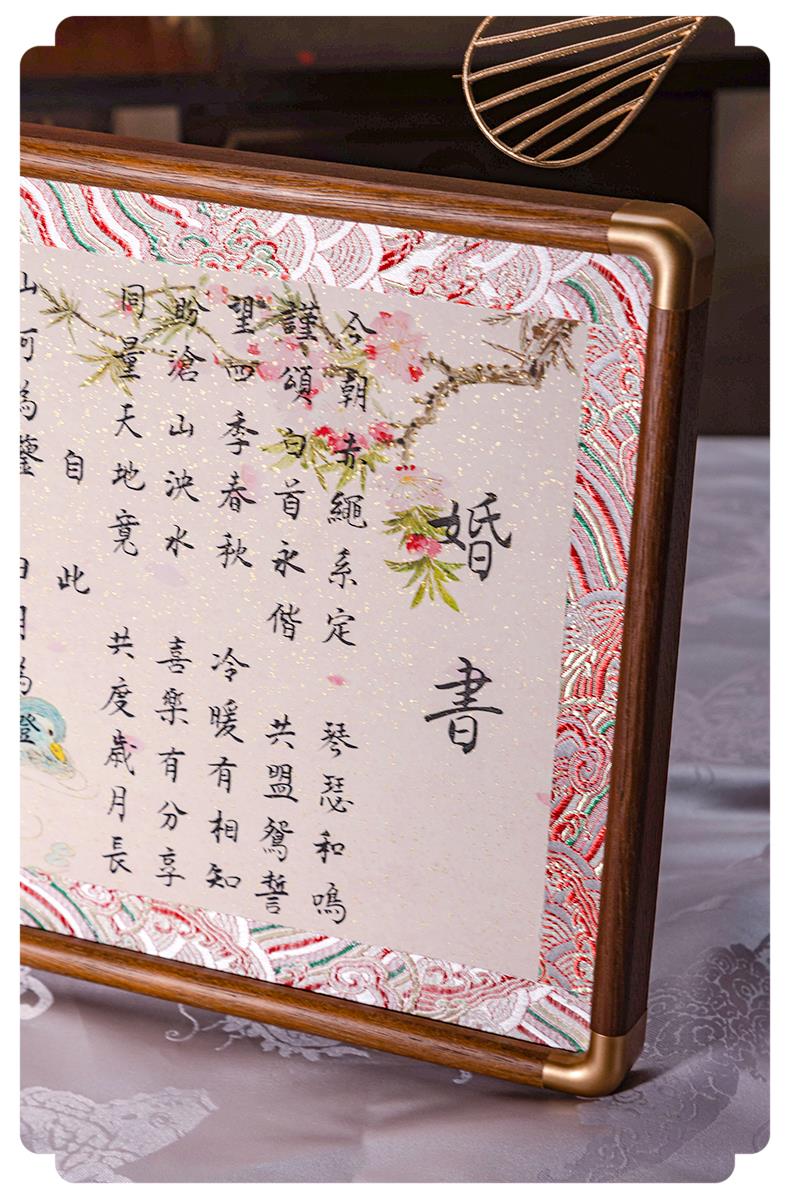 婚書
今朝赤繩系定 琴瑟和鳴
謹頌白首永偕 共盟鴛誓
望四季春秋 冷暖有相知
盼滄山泱水 喜樂有分享
同量天地寬 共度歲月長
自此
山河為鑒 日月為證